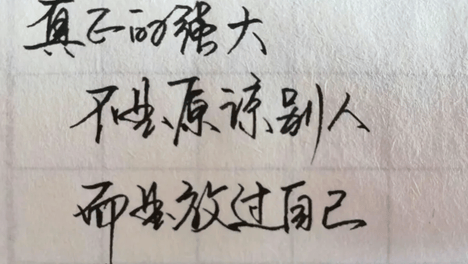 真正的强大
不是原谅别人
而是放过自己